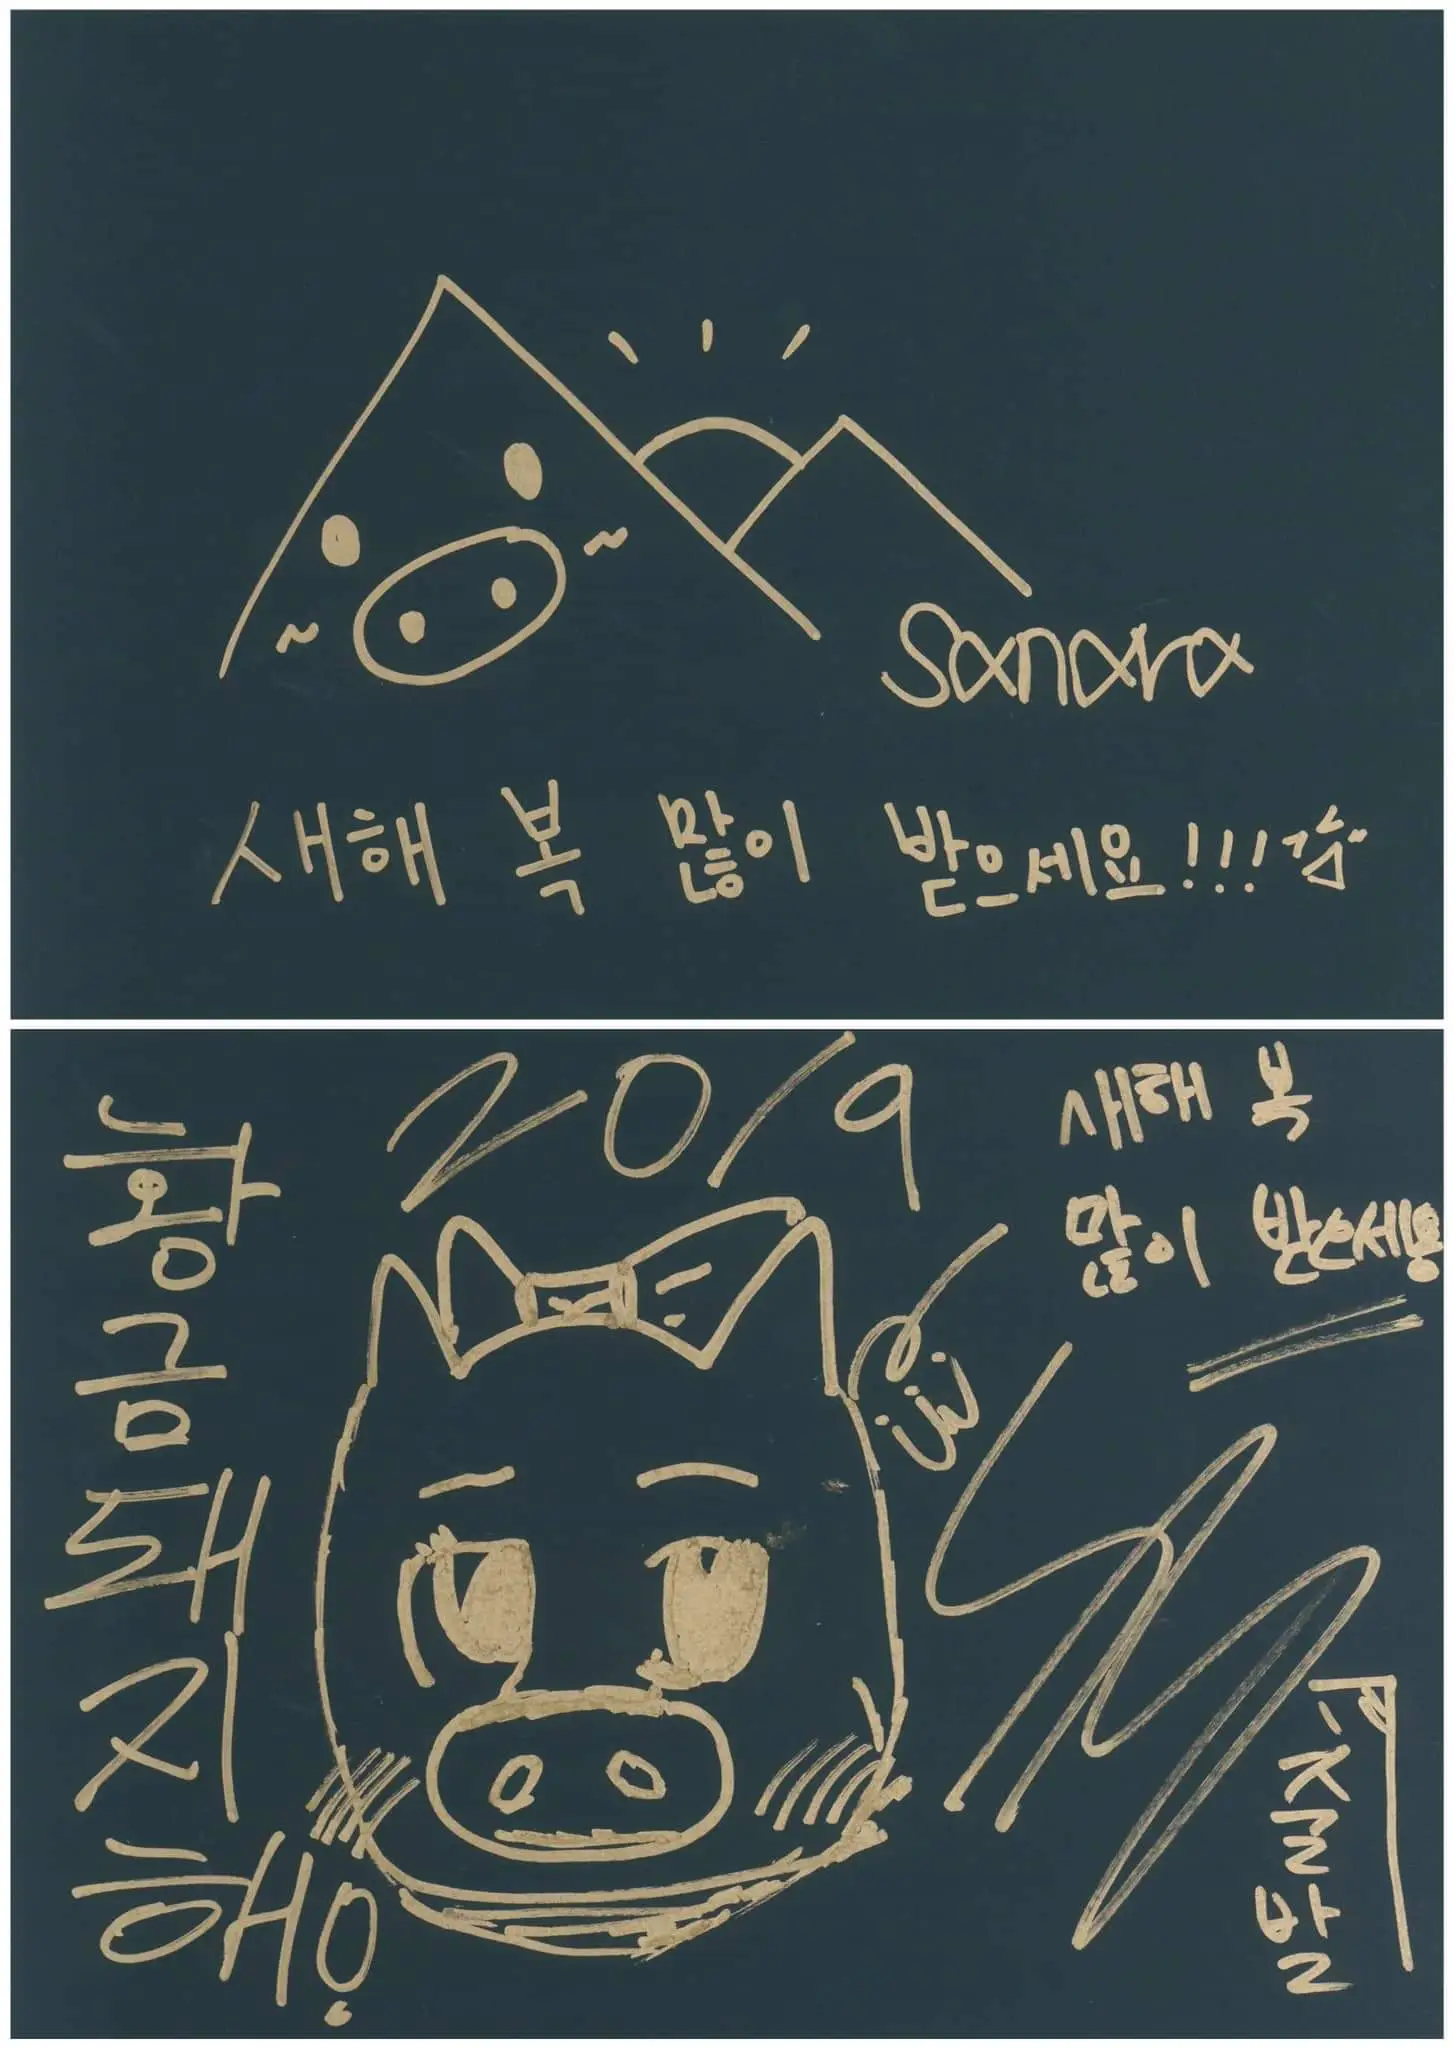 Sanara
새해 복 많이 받으세요!!!
2019
새해 복
많이 받으세용
황금돼지해!